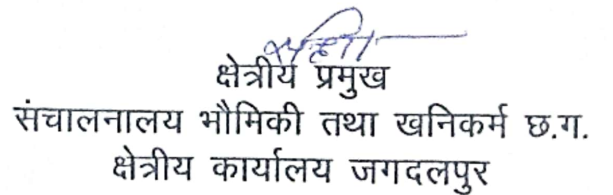 क्षेत्रीय प्रमुख
संचालनालय भौमिकी तथा खनिकर्म छ.ग.
क्षेत्रीय कार्यालय जगदलपुर